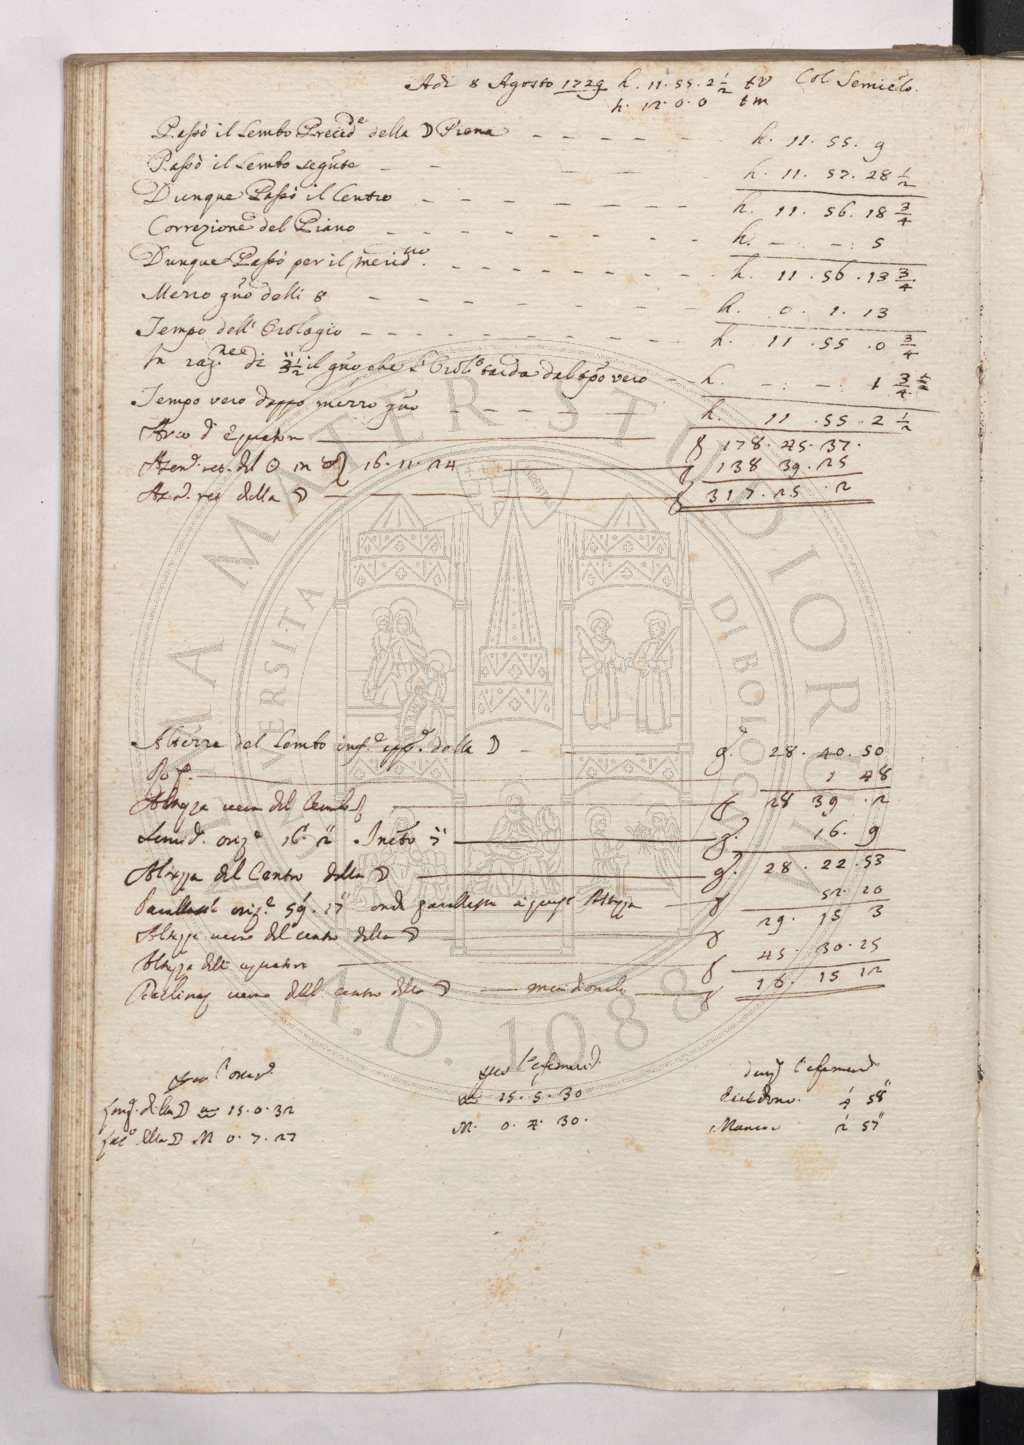 Adi 8 Agosto 1729 h. 11. 55. 2 1/2 t v Col Semiclo.
h. 12. 0. 0 t m
Passò il Lembo Preced.e della ☽ Piena h. 11. 55. 9
Passò il Lembo segute h. 11. 57. 28 1/2
Dunque Passò il Centro h. 11. 56. 18 3/4
Correzione del Piano h. - : - : 5
Dunque Passò per il merid.no h. 11. 56. 13 3/4
Mezzo gno delli 8 h. 0. 1. 13
Tempo dell' Orologio h. 11. 55. 0 3/4
In rag.nee di 3 1/2 il gno che l' Orolo tarda dal tpo vero h. - : - : 1 3/4
Tempo vero doppo mezzo gno h. 11. 55. 2 1/2
Arco d'Equatore g 178. 45. 37.
Ascen. ret. del ☉ in ♌ 16. 11. 24 g 138 39. 25
Asc. ret della ☽ g 317. 25. 2
Altezza del Lembo inf.e app.e della ☽ g. 28. 40. 50
Ref. 1 48
Altezza vera del Lembo g 28 39. 2
Semid. oriz.e 16' 2" Incto 7" g. 16. 9
Altezza del Centro della ☽ g. 28. 22. 53
Parallasse oriz.e 59. 17" onde parallasse a Altezza g 52. 20
Altezza vera del centro della ☽ g 29. 15 3
Altezza dell' equatore g 45. 30. 25
Declinaz vera dell centro della ☽ meridionale g 16. 15 12
l' oserv. l'efemerid. l'efemerid
Long. della ☽ ♒ 15. 0. 32 ♒ 15. 5. 30 4' 58"
Lat. della ☽ M 0. 7. 27 M. 0. 4. 30. Manca 2' 57"
ALMA MATER STUDIORUM
UNIVERSITÀ DI BOLOGNA
A.D. 1088